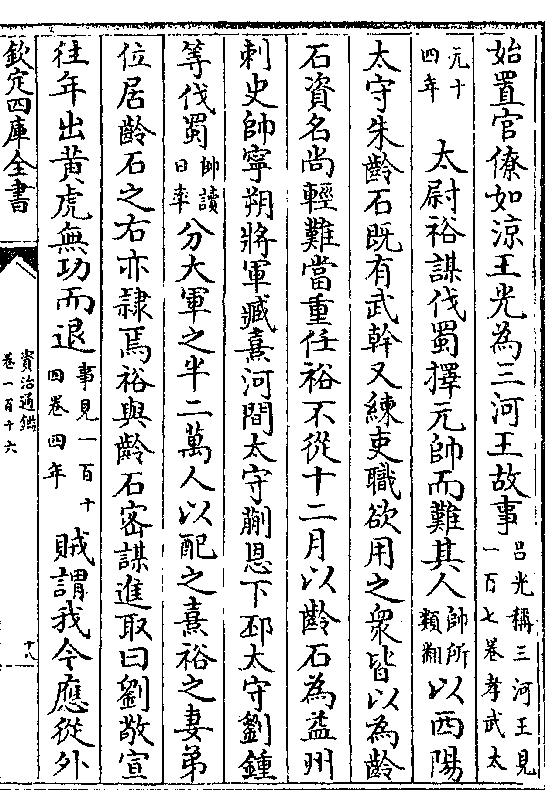 始置官僚如涼王光為三河王故事呂光稱三河王見一百七卷孝武太
元十四年　太尉裕謀伐蜀擇元帥而難其人帥所類翻以西陽
太守朱齡石既有武幹又練吏職欲用之衆皆以為齡
石資名尚輕難當重任裕不從十二月以齡石為益州
刺史帥寧朔將軍臧熹河間太守蒯恩下邳太守劉鍾
等伐蜀帥讀曰率分大軍之半二萬人以配之熹裕之妻弟
位居齡石之右亦隸焉裕與齡石密謀進取曰劉敬宣
往年出黃虎無功而退事見一百十四卷四年賊謂我今應從外
欽定四庫全書
資治通鑑
卷一百十六
十八